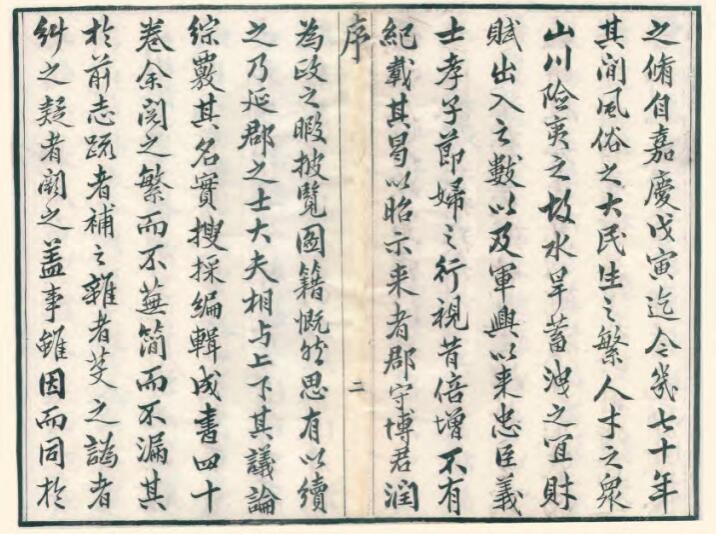 之脩自嘉慶戊寅迄今幾七十年
其間風俗之大民生之繁人才之衆
山川險夷之故水旱蓄洩之宜財
賦出入之數以及軍興以來忠臣義
士孝子節婦之行視昔倍增不有
紀載其曷以昭示来者郡守博君潤
序
二
為政之暇披覽圖籍慨然思有以續
之乃延郡之士大夫相与上下其議論
綜覈其名實搜採编輯成書四十
卷余閱之繁而不蕪簡而不漏其
於前志疏者補之雜者芟之譌者
糾之疑者闕之盖事雖因而同於